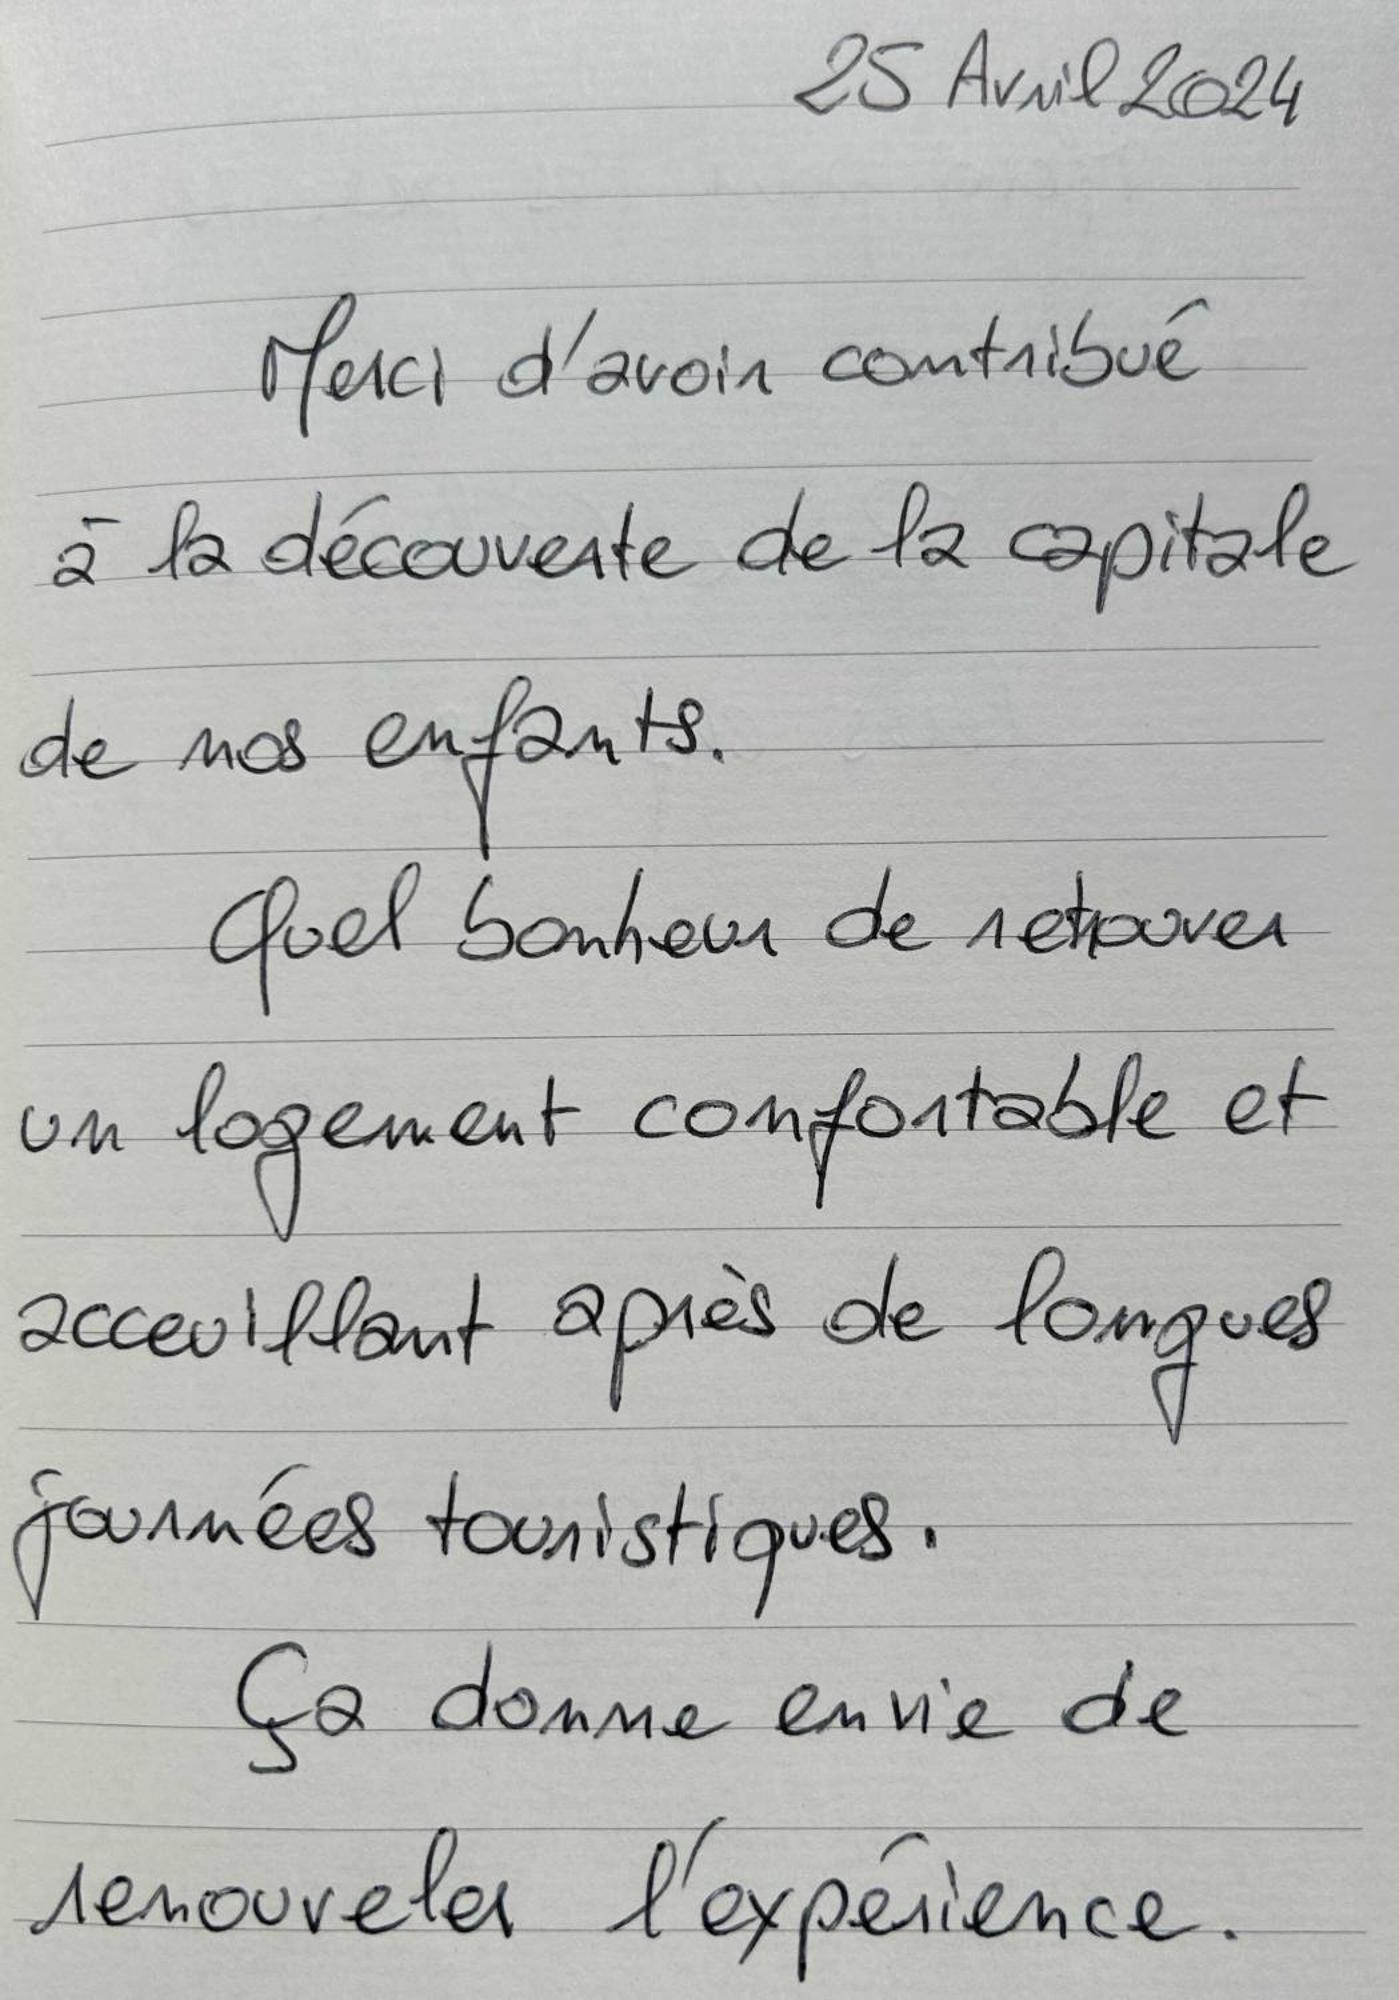 25 Avril 2024
Merci d'avoir contribué
à la découverte de la capitale
de nos enfants.
Quel bonheur de retrouver
un logement confortable et
acceuillant après de longues
journées touristiques.
Ça donne envie de
renouveler l'expérience.